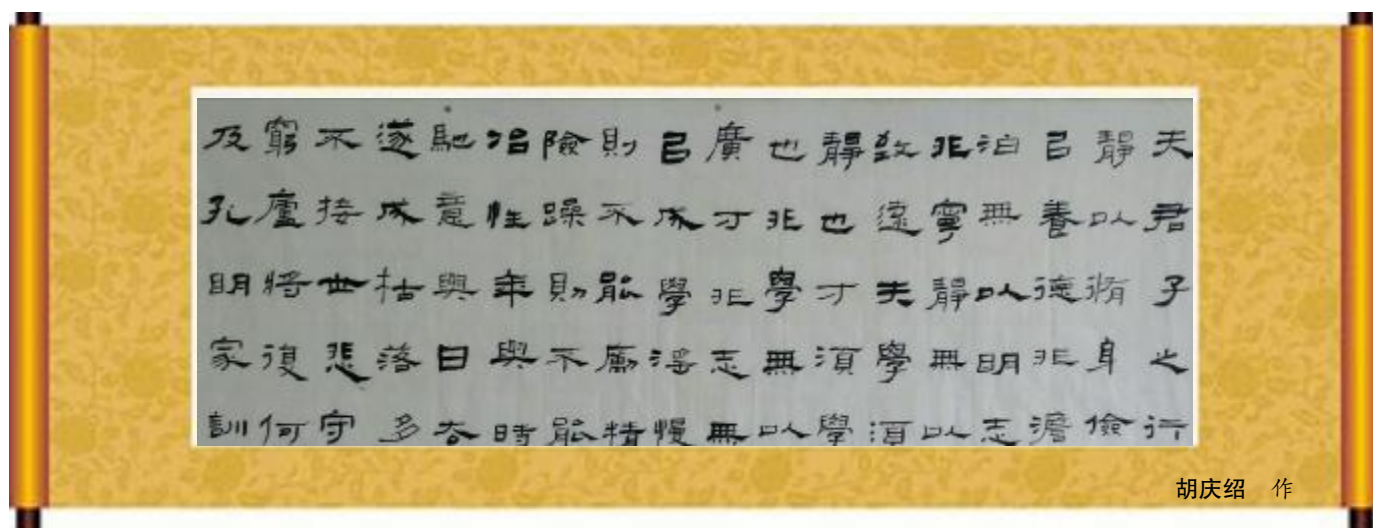 夫君子之行
靜以脩身儉
㠯養德非澹
泊無以明志
非寧靜無以
致遠夫學須
靜也才須學
也非學無以
廣才非志無
㠯成學淫慢
則不能勵精
險躁則不能
治性年與時
馳意與日去
遂成枯落多
不接世悲守
窮廬將復何
及孔明家訓
胡庆绍 作